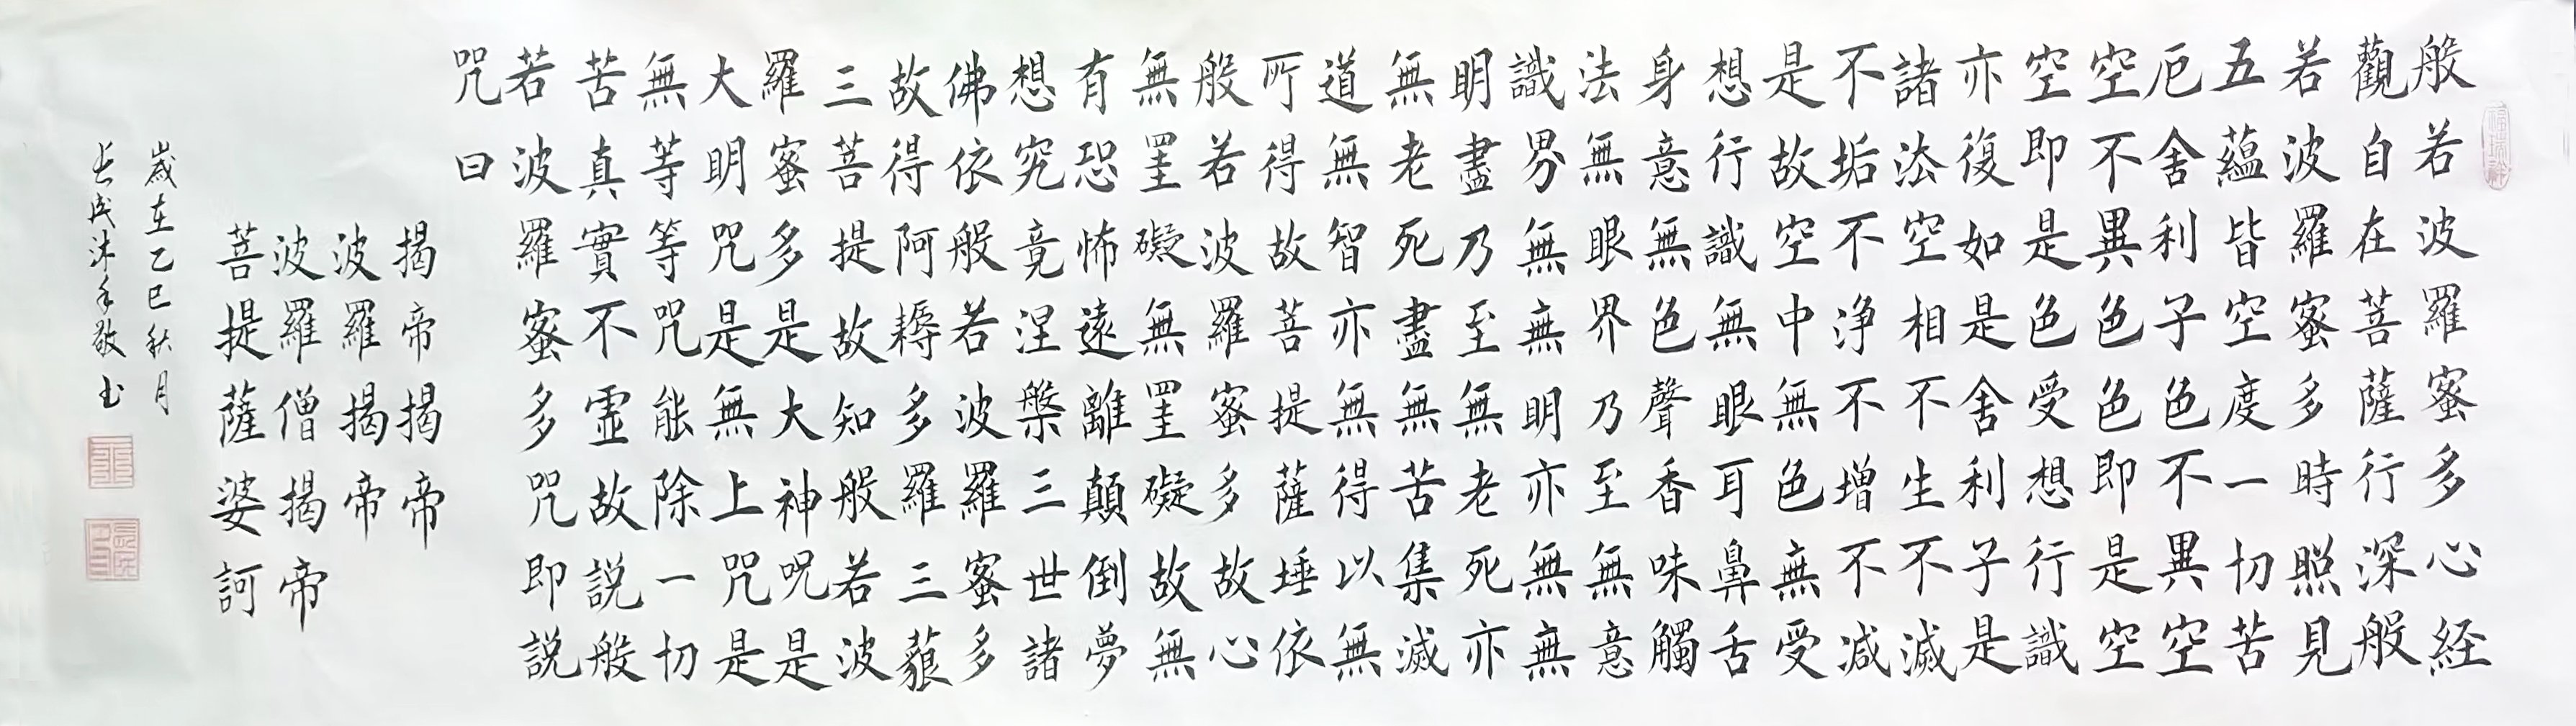 般若波羅蜜多心経
觀自在菩薩行深般
若波羅蜜多時照見
五蘊皆空度一切苦
厄舍利子色不異空
空不異色色即是空
空即是色受想行識
亦復如是舍利子是
諸法空相不生不滅
不垢不净不增不减
是故空中無色無受
想行識無眼耳鼻舌
身意無色聲香味觸
法無眼界乃至無意
識界無無明亦無無
明盡乃至無老死亦
無老死盡無苦集滅
道無智亦無得以無
所得故菩提薩埵依
般若波羅蜜多故心
無罣礙無罣礙故無
有恐怖遠離顛倒夢
想究竟涅槃三世諸
佛依般若波羅蜜多
故得阿耨多羅三藐
三菩提故知般若波
羅蜜多是大神呪是
大明咒是無上咒是
無等等咒能除一切
苦真實不虛故説般
若波羅蜜多咒即説
咒曰
揭帝揭帝
波羅揭帝
波羅僧揭帝
菩提薩婆訶
歲在乙巳秋月
長成沐手敬书